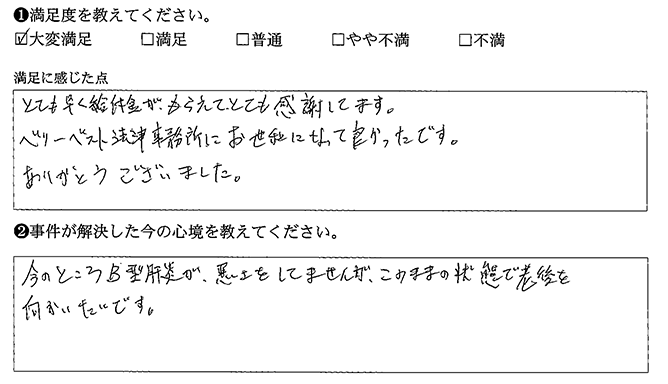 ❶満足度を教えてください。
☑大変満足 □満足 □普通 □やや不満 □不満
満足に感じた点
とても早く給付金が、もらえて、とても感謝してます。
ベリーベスト法律事務所にお世話になって良かったです。
ありがとうございました。
❷事件が解決した今の心境を教えてください。
今のところB型肝炎が、悪さをしてませんが、このままの状態で老後を
向かいたいです。